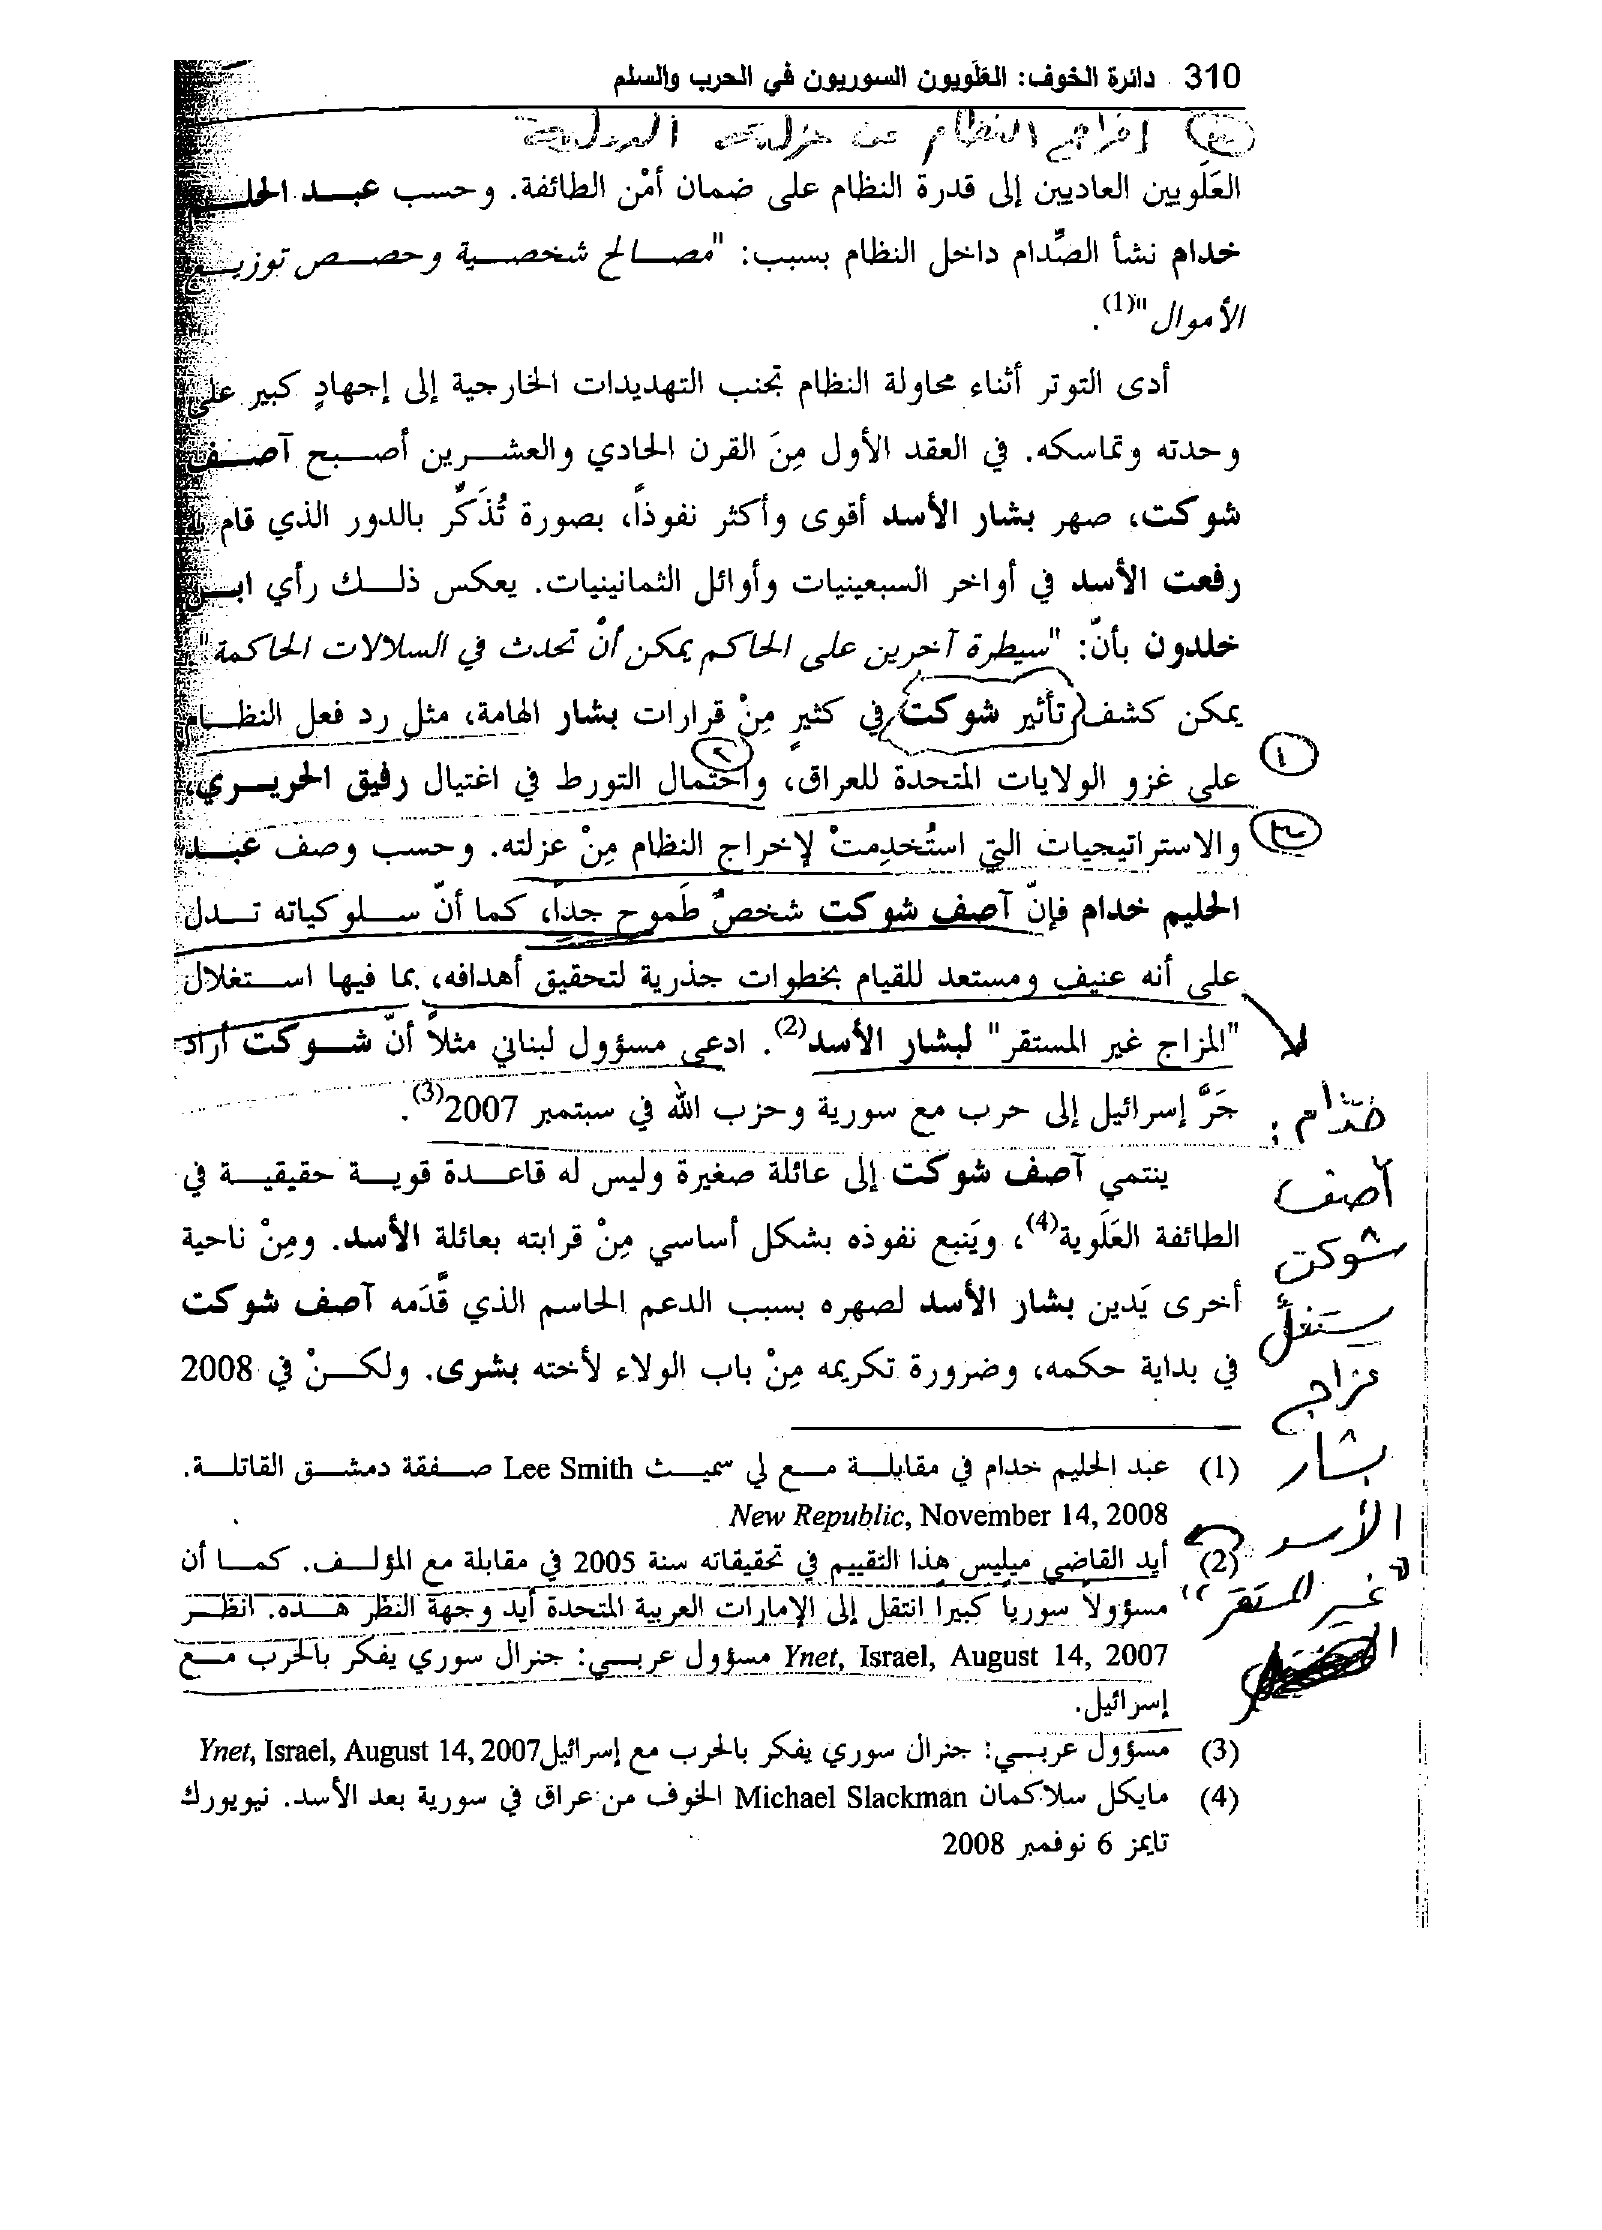 310 دائرة الخوف: العَلَويون السوريون في الحرب والسلم
(٣) إخراج النظام من عزلته الدولية
العَلَويين العاديين إلى قدرة النظام على ضمان أمْن الطائفة. وحسب عبد الحليم
خدام نشأ الصِّدام داخل النظام بسبب: "مصالح شخصية وحصص توزيع
الأموال"(1).
أدى التوتر أثناء محاولة النظام تجنب التهديدات الخارجية إلى إجهادٍ كبير على
وحدته وتماسكه. في العقد الأول مِنَ القرن الحادي والعشرين أصبح آصف
شوكت، صهر بشار الأسد أقوى وأكثر نفوذاً، بصورة تُذَكِّر بالدور الذي قام به
رفعت الأسد في أواخر السبعينيات وأوائل الثمانينيات. يعكس ذلك رأي ابن
خلدون بأنّ: "سيطرة آخرين على الحاكم يمكن أنْ تحدث في السلالات الحاكمة".
يمكن كشف تأثير شوكت في كثيرٍ مِنْ قرارات بشار الهامة، مثل رد فعل النظام
(١)
على غزو الولايات المتحدة للعراق، (٢) واحتمال التورط في اغتيال رفيق الحريري،
(٣)
والاستراتيجيات التي استُخدِمتْ لإخراج النظام مِنْ عزلته. وحسب وصف عبد
الحليم خدام فإنّ آصف شوكت شخصٌ طَموح جداً، كما أنّ سلوكياته تدل
على أنه عنيف ومستعد للقيام بخطوات جذرية لتحقيق أهدافه، بما فيها استغلال
"المزاج غير المستقر" لبشار الأسد(2). ادعى مسؤول لبناني مثلاً أنّ شوكت أراد
جَرَّ إسرائيل إلى حرب مع سورية وحزب الله في سبتمبر 2007(3).
ينتمي آصف شوكت إلى عائلة صغيرة وليس له قاعدة قوية حقيقية في
الطائفة العَلَوية(4)، ويَنبع نفوذه بشكل أساسي مِنْ قرابته بعائلة الأسد. ومِنْ ناحية
أخرى يَدين بشار الأسد لصهره بسبب الدعم الحاسم الذي قَدَّمه آصف شوكت
في بداية حكمه، وضرورة تكريمه مِنْ باب الولاء لأخته بشرى. ولكنْ في 2008
خدّام:
آصف
شوكت
يستغل
مزاج
بشار
الأسد
"غير المستقر"
(1) عبد الحليم خدام في مقابلة مع لي سميث Lee Smith صفقة دمشق القاتلة.
New Republic, November 14, 2008
(2) أيد القاضي ميليس هذا التقييم في تحقيقاته سنة 2005 في مقابلة مع المؤلف. كما أن
مسؤولاً سورياً كبيراً انتقل إلى الإمارات العربية المتحدة أيد وجهة النظر هذه. انظر
Ynet, Israel, August 14, 2007 مسؤول عربي: جنرال سوري يفكر بالحرب مع
إسرائيل.
(3) مسؤول عربي: جنرال سوري يفكر بالحرب مع إسرائيل Ynet, Israel, August 14, 2007
(4) مايكل سلاكمان Michael Slackman الخوف من عراق في سورية بعد الأسد. نيويورك
تايمز 6 نوفمبر 2008